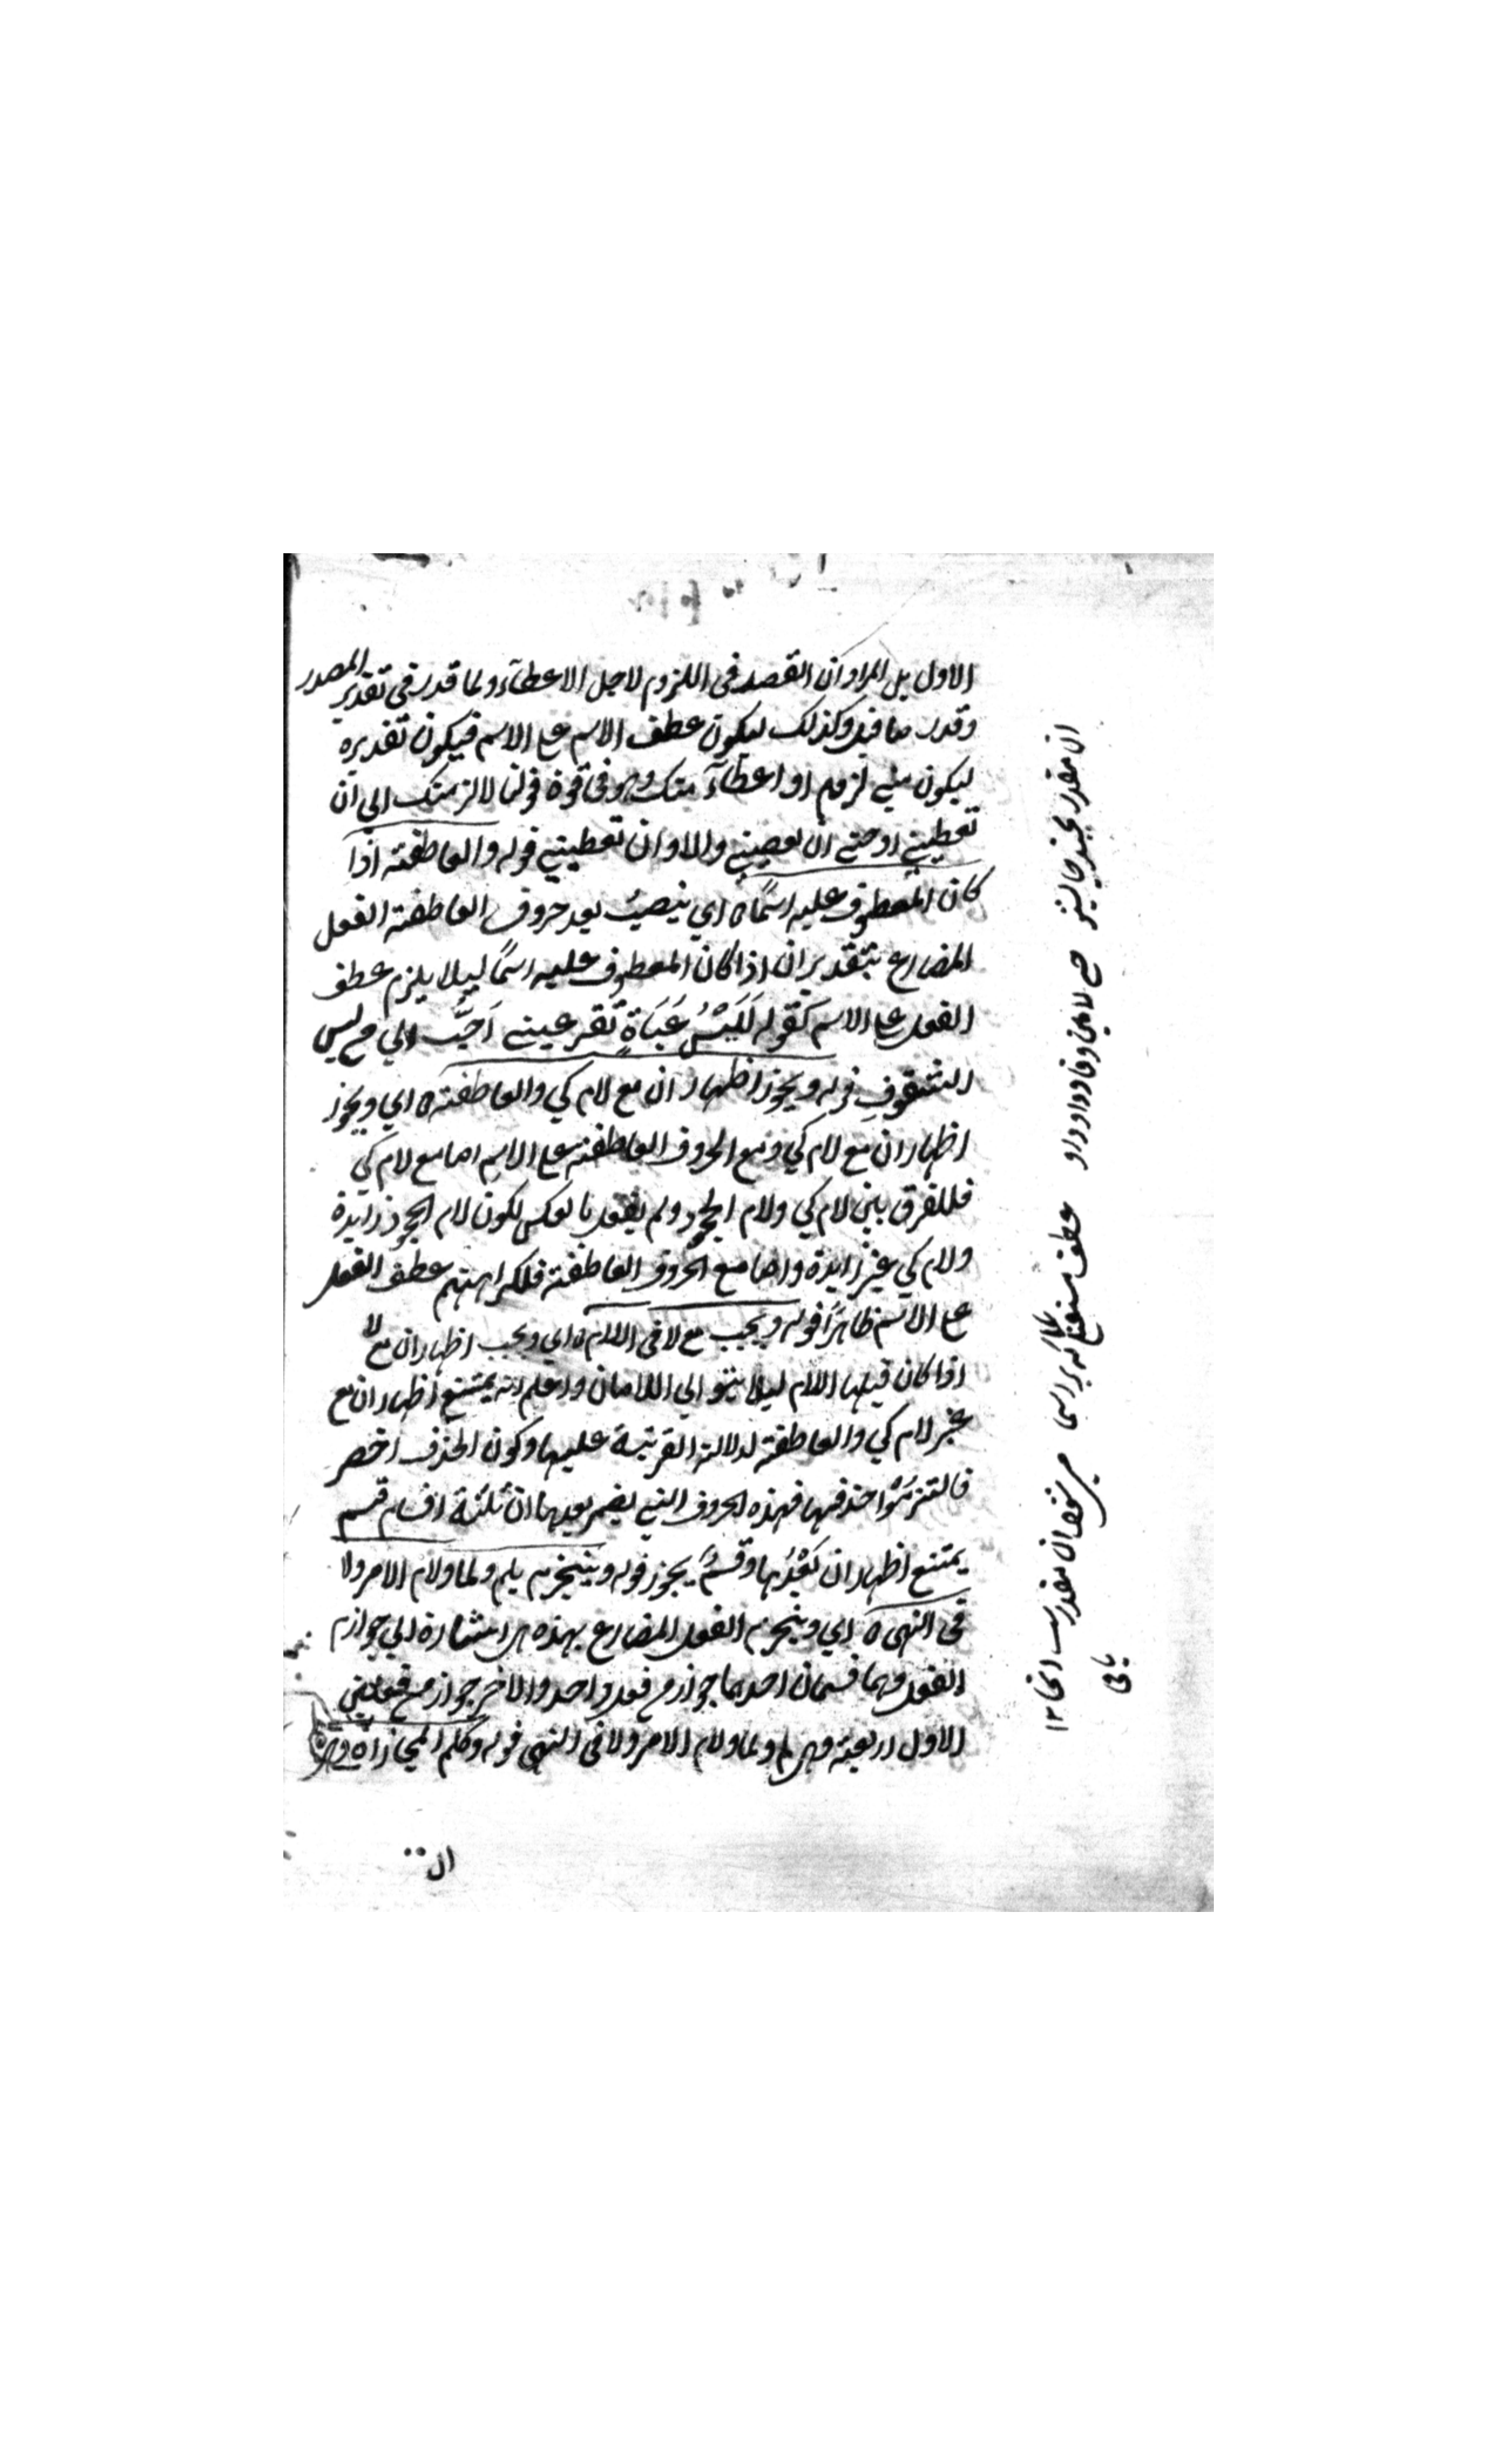 الاول بل المراد ان القصد فى اللزوم لاجل الاعطآء ولما قدر فى تقدير المصدر
وقدر ما قبله كذلك ليكون عطف الاسم على الاسم فيكون تقديره
ليكون منى لزوم او اعطآء منك وهو فى قوة قولنا لالزمنك الى ان
تعطينى او حتى ان تعطينى والا وان تعطينى قوله والعاطفة اذا
كان المعطوف عليه اسمًا ه اي ينصبُ بعد حروف العاطفة الفعل
المضارع بتقدير ان اذا كان المعطوف عليه اسمًا ليلا يلزم عطف
الفعل على الاسم كقوله لَلَبْسُ عَبَاةٍ تقر عينى اَحَبُّ الي من لبس
الشفوفِ قوله ويجوز اظهار ان مع لام كي والعاطفة ه اي ويجوز
اظهار ان مع لام كي ومع الحروف العاطفة على الاسم اما مع لام كي
فللفرق بين لام كي ولام الجحود ولم يفعل بالعكس لكون لام الجحود زايدة
ولام كي غير زايدة واما مع الحروف العاطفة فلكراهتهم عطف الفعل
على الاسم ظاهرًا قوله ويجب مع لا فى اللام ه اي ويجب اظهار ان مع لا
اذا كان قبلها اللام ليلا يتوالي اللامان واعلم انه يمتنع اظهار ان مع
غير لام كي والعاطفة لدلالة القرينة عليها وكون الحذف اخصر
فالتزمُوا حذفها فهذه الحروف التي يضمر بعدها ان ثلثة اقسام قسم
يمتنع اظهار ان بَعْدَها وقسمٌ يجوز قوله وينجزم بلم ولما ولام الامر ولا
فى النهى ه اي وينجزم الفعل المضارع بهذه اشارة الي جوازم
الفعل وهما قسمان احدهما جوازم فعل واحد والاخر جوازم فعلين
الاول اربعة وهى لم ولما ولام الامر ولا فى النهى قوله وكلم المجازاة وهى
ان مقدر
عطف